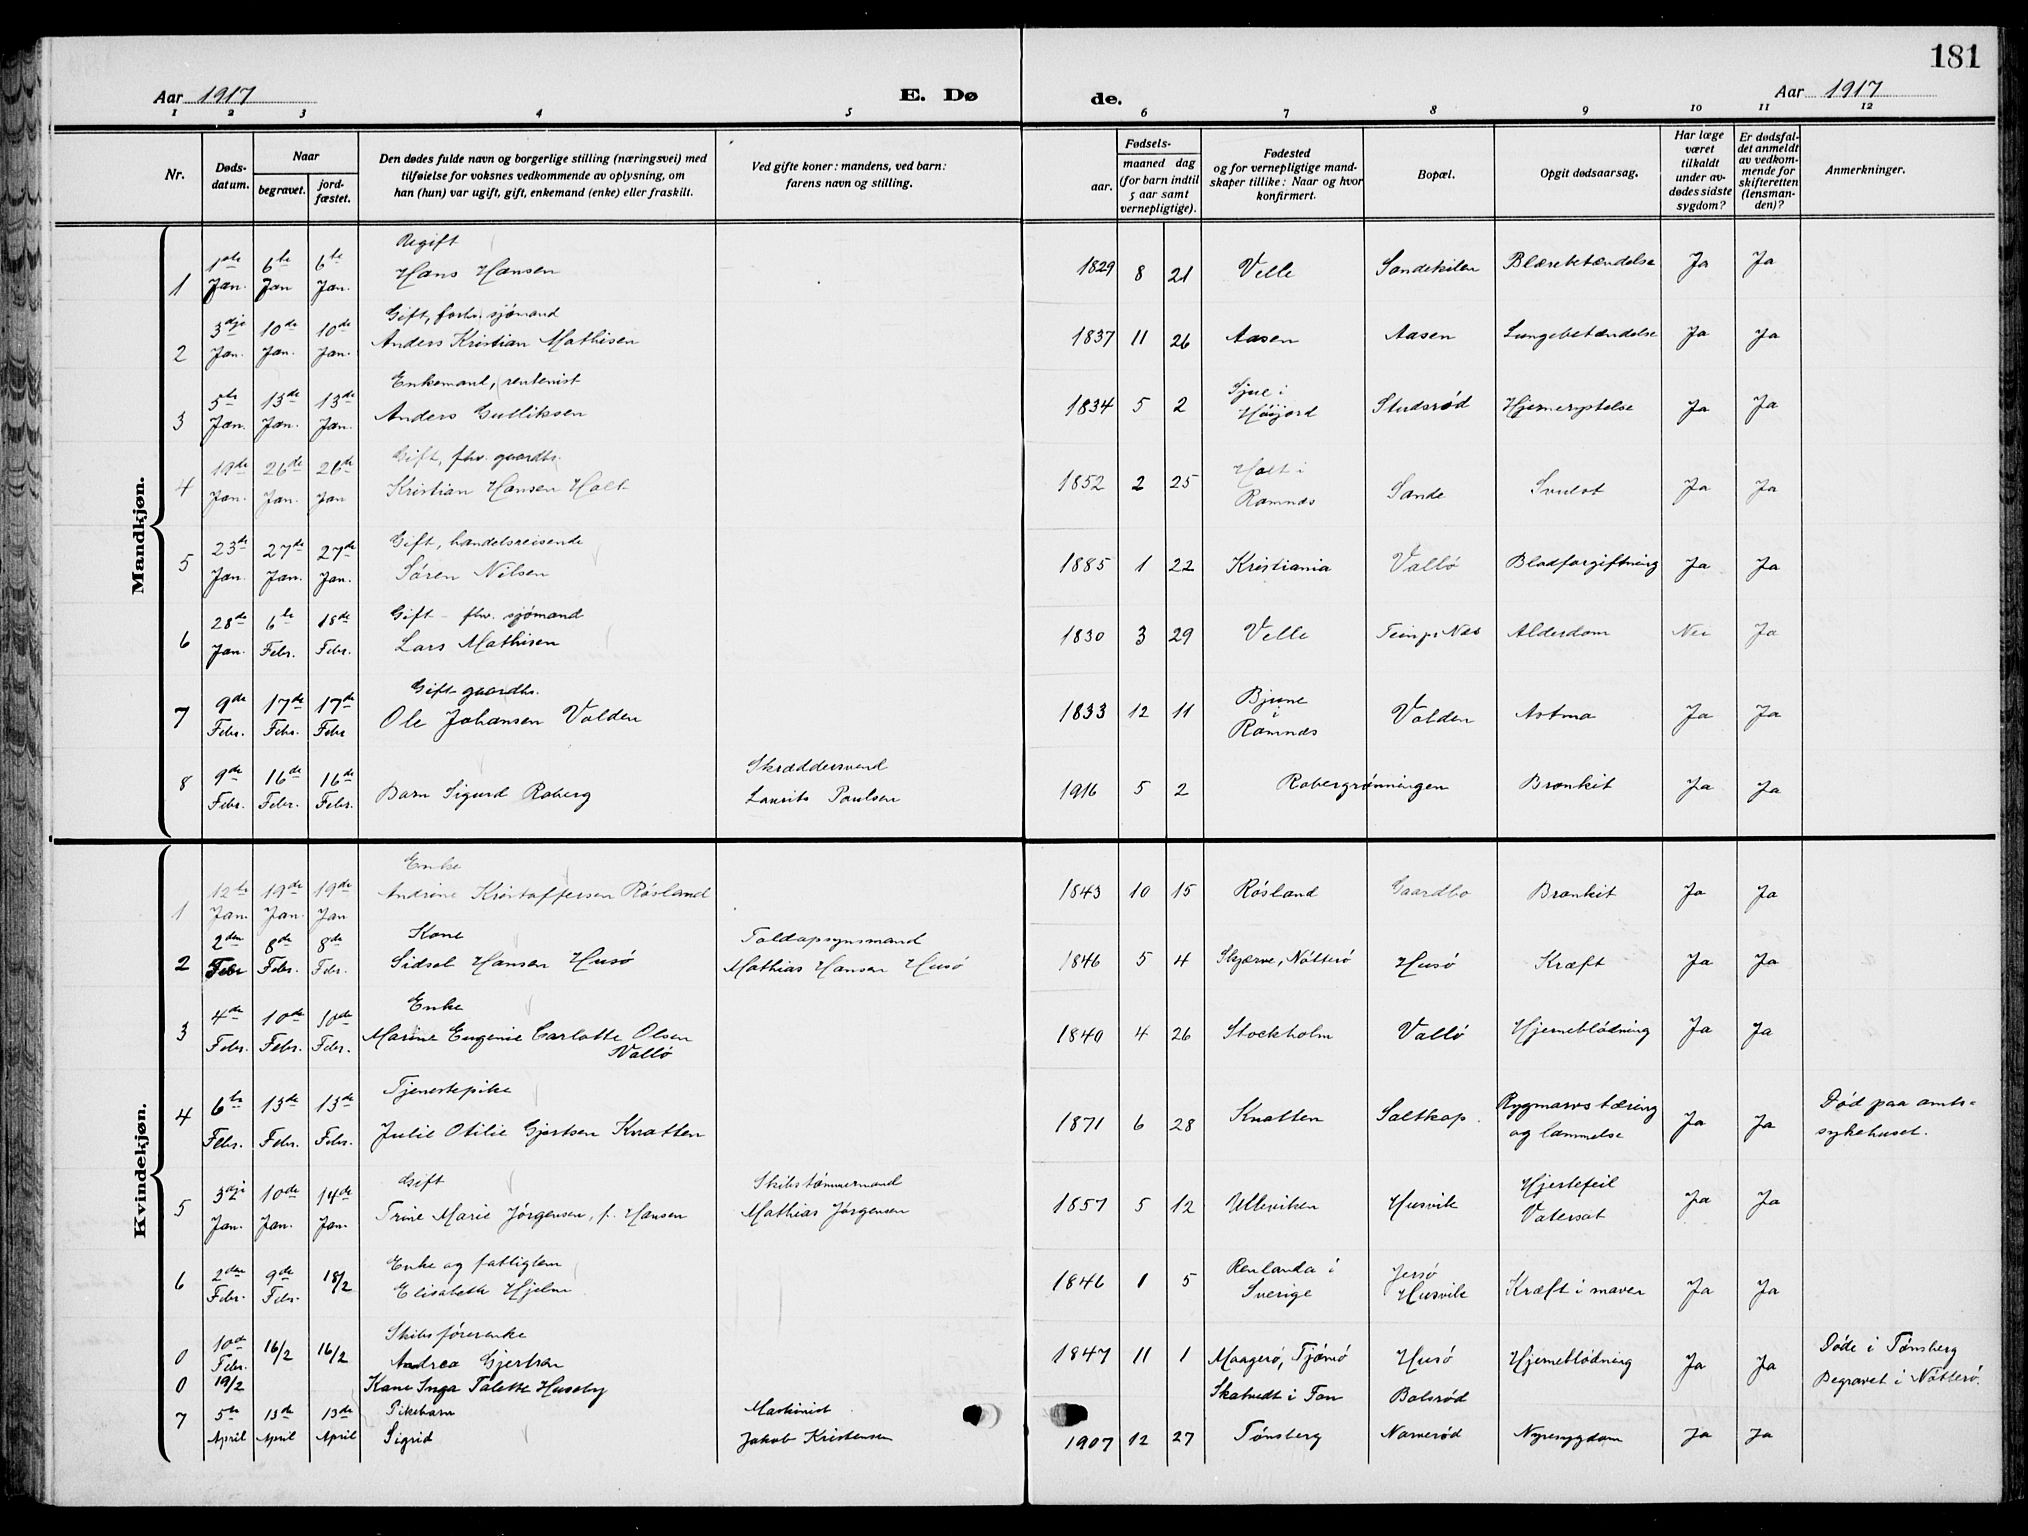 181
Aar 1917 E. Dø de. Aar 1917
1 2 3 4 5 6 7 8 9 10 11 12
Nr.
Døds-
datum.
Naar
begravet.
jord-
fæstet.
Den dødes fulde navn og borgerlige stilling (næringsvei) med
tilføielse for voksnes vedkommende av oplysning, om
han (hun) var ugift, gift, enkemand (enke) eller fraskilt.
Ved gifte koner: mandens, ved barn:
farens navn og stilling.
Fødsels-
aar.
maaned dag
(for barn indtil
5 aar samt
vernepligtige).
Fødested
og for vernepligtige mand-
skaper tillike: Naar og hvor
konfirmert.
Bopæl.
Opgit dødsaarsag.
Har læge
været
tilkaldt
under av-
dødes sidste
sygdom?
Er dødsfal-
det anmeldt
av vedkom-
mende for
skifteretten
(lensman-
den)?
Anmerkninger.
Mandkjøn.
Ugift
1 1ste Jan. 6te Jan 6te Jan. Hans Hansen 1829 8 21 Velle Sandekilen Blærebetændelse Ja Ja
Gift, forh. sjømand
2 3dje Jan. 10de Jan. 10de Jan. Anders Kristian Mathisen 1837 11 26 Aasen Aasen Lungebetændelse Ja Ja
Enkemand, rentenist
3 5te Jan. 13de Jan. 13de Jan. Anders Gulliksen 1834 5 2 i Høijord Studsrød Hjerneryptelse Ja Ja
Gift, fhv. gaardbr.
4 19de Jan. 26de Jan. 26de Jan Kristian Hansen Holt 1852 2 25 Holt i Ramnæs Sande Svulst Ja Ja
Gift, handelsreisende
5 23de Jan. 27de Jan. 27de Jan. Søren Nilsen 1885 1 22 Kristiania Vallø Blodforgiftning Ja Ja
Gift - fhv. sjømand
6 28de Jan. 6te Febr. 18de Febr. Lars Mathisen 1830 3 29 Velle Næs Alderdom Nei Ja
Gift gaardbr.
7 9de Febr. 17de Febr. 17de Febr Ole Johansen Valden 1833 12 11 Bjune i Ramnæs Valden Astma Ja Ja
Skræddersvend
8 9de Febr. 16de Febr. 16de Febr. Barn Sigurd Roberg Laurits Paulsen 1916 5 2 Robergrønningen Bronkit Ja Ja
Kvindekjøn.
Enke
1 12te Jan. 19de Jan. 19de Jan Andrine Kristoffersen Røsland 1843 10 15 Røsland Gaardbo Bronkit Ja Ja
Kone Toldopsynsmand
2 2den Febr 8de Febr. 8de Febr. Sidsel Hansen Husø Mathias Hansen Husø 1846 5 4 Skjærve, Nøtterø Husø Kræft Ja Ja
Enke
3 4de Febr. 10de Febr. 10de Febr. Marine Eugenie Carlotte Olsen Vallø 1840 4 26 Stockholm Vallø Hjerneblødning Ja Ja
Tjenestepike
4 6te Febr. 13de Febr. 13de Febr. Julie Otilie Gjertsen Knatten 1871 6 28 Knatten Saltkop. Rygmarvstæring og lammelse Ja Ja Død paa amts-sykehuset.
Gift Skibstømmermand
5 3dje Jan. 10de Jan. 14de Jan. Trine Marie Jørgensen, f. Hansen Mathias Jørgensen 1857 5 12 Ulleviken Husvik Hjertefeil Vatersot Ja Ja
Enke og fattiglem
6 2den Febr. 9de Febr. 18/2 Elisabeth Hjelm 1846 1 5 Renlanda i Sverige Jersø Husvik Kræft i maven Ja Ja
Skibsførerenke
0 10de Febr. 16/2 16/2 Andrea Gjertsen 1847 11 1 Maagerø, Tjømø Husø Hjerneblødning Ja Ja Døde i Tønsberg Begravet i Nøtterø.
0 19/2 Kone Inga Talette Huseby Skatvedt i Fon Bolsrød
Pikebarn Maskinist
7 5te April 13de April 13de April Sigrid Jakob Kristensen 1907 12 27 Tønsberg Narverød Nyresygdom Ja Ja